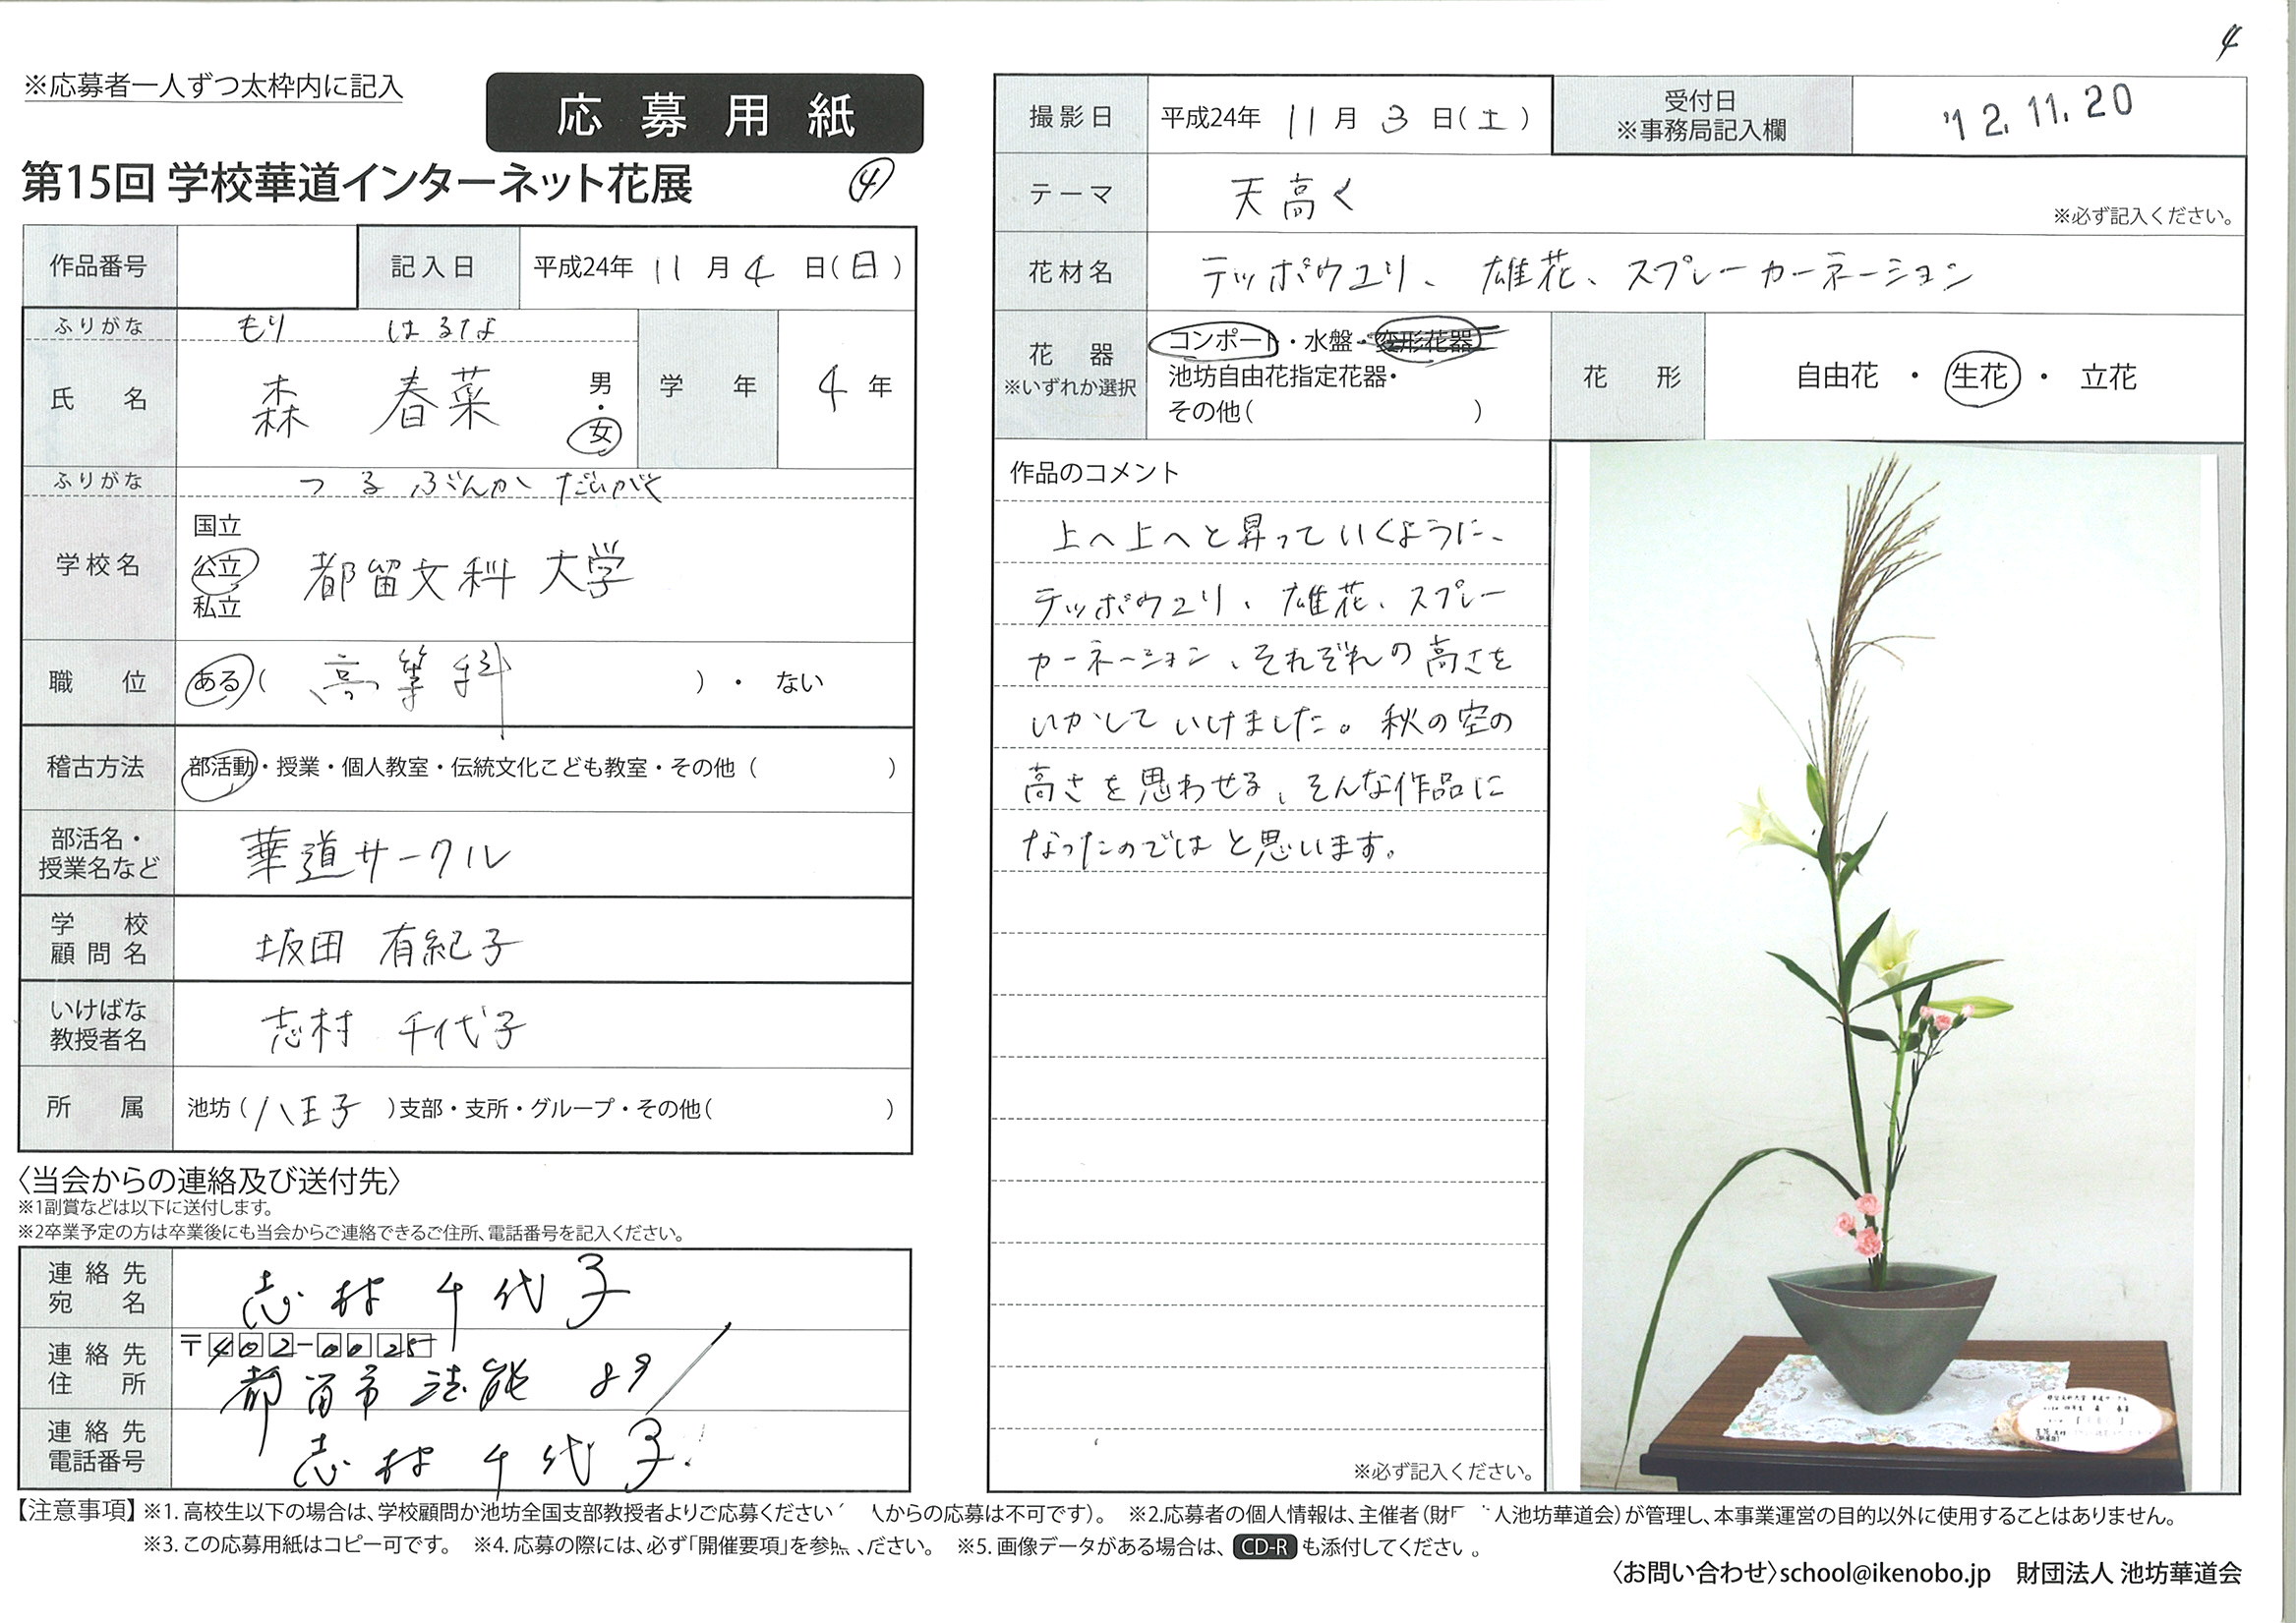 4
※応募者一人ずつ太枠内に記入
応募用紙
第15回 学校華道インターネット花展 ④
作品番号
記入日 平成24年 11月 4日(日)
ふりがな もり はるな
氏名 森 春菜 男・女
学年 4年
ふりがな つるぶんかだいがく
学校名 国立 公立 私立 都留文科大学
職位 ある( 高等科 )・ ない
稽古方法 部活動・授業・個人教室・伝統文化こども教室・その他( )
部活名・
授業名など 華道サークル
学校
顧問名 坂田 有紀子
いけばな
教授者名 志村 千代子
所属 池坊(八王子)支部・支所・グループ・その他( )
〈当会からの連絡及び送付先〉
※1副賞などは以下に送付します。
※2卒業予定の方は卒業後にも当会からご連絡できるご住所、電話番号を記入ください。
連絡先
宛名 志村 千代子
連絡先
住所 〒402-0025
都留市法能 89
連絡先
電話番号 志村 千代子
撮影日 平成24年 11月 3日(土)
受付日
※事務局記入欄 '12.11.20
テーマ 天高く ※必ず記入ください。
花材名 テッポウユリ、雄花、スプレーカーネーション
花器
※いずれか選択
コンポート・水盤・変形花器
池坊自由花指定花器・
その他( )
花形 自由花 ・ 生花 ・ 立花
作品のコメント
上へ上へと昇っていくように、
テッポウユリ、雄花、スプレー
カーネーション、それぞれの高さを
いかしていけました。秋の空の
高さを思わせる、そんな作品に
なったのではと思います。
※必ず記入ください。
【注意事項】※1. 高校生以下の場合は、学校顧問か池坊全国支部教授者よりご応募ください 人からの応募は不可です)。 ※2.応募者の個人情報は、主催者(財 人池坊華道会)が管理し、本事業運営の目的以外に使用することはありません。
※3. この応募用紙はコピー可です。 ※4. 応募の際には、必ず「開催要項」を参 ください。 ※5. 画像データがある場合は、 CD-R も添付してください。
〈お問い合わせ〉school@ikenobo.jp 財団法人 池坊華道会